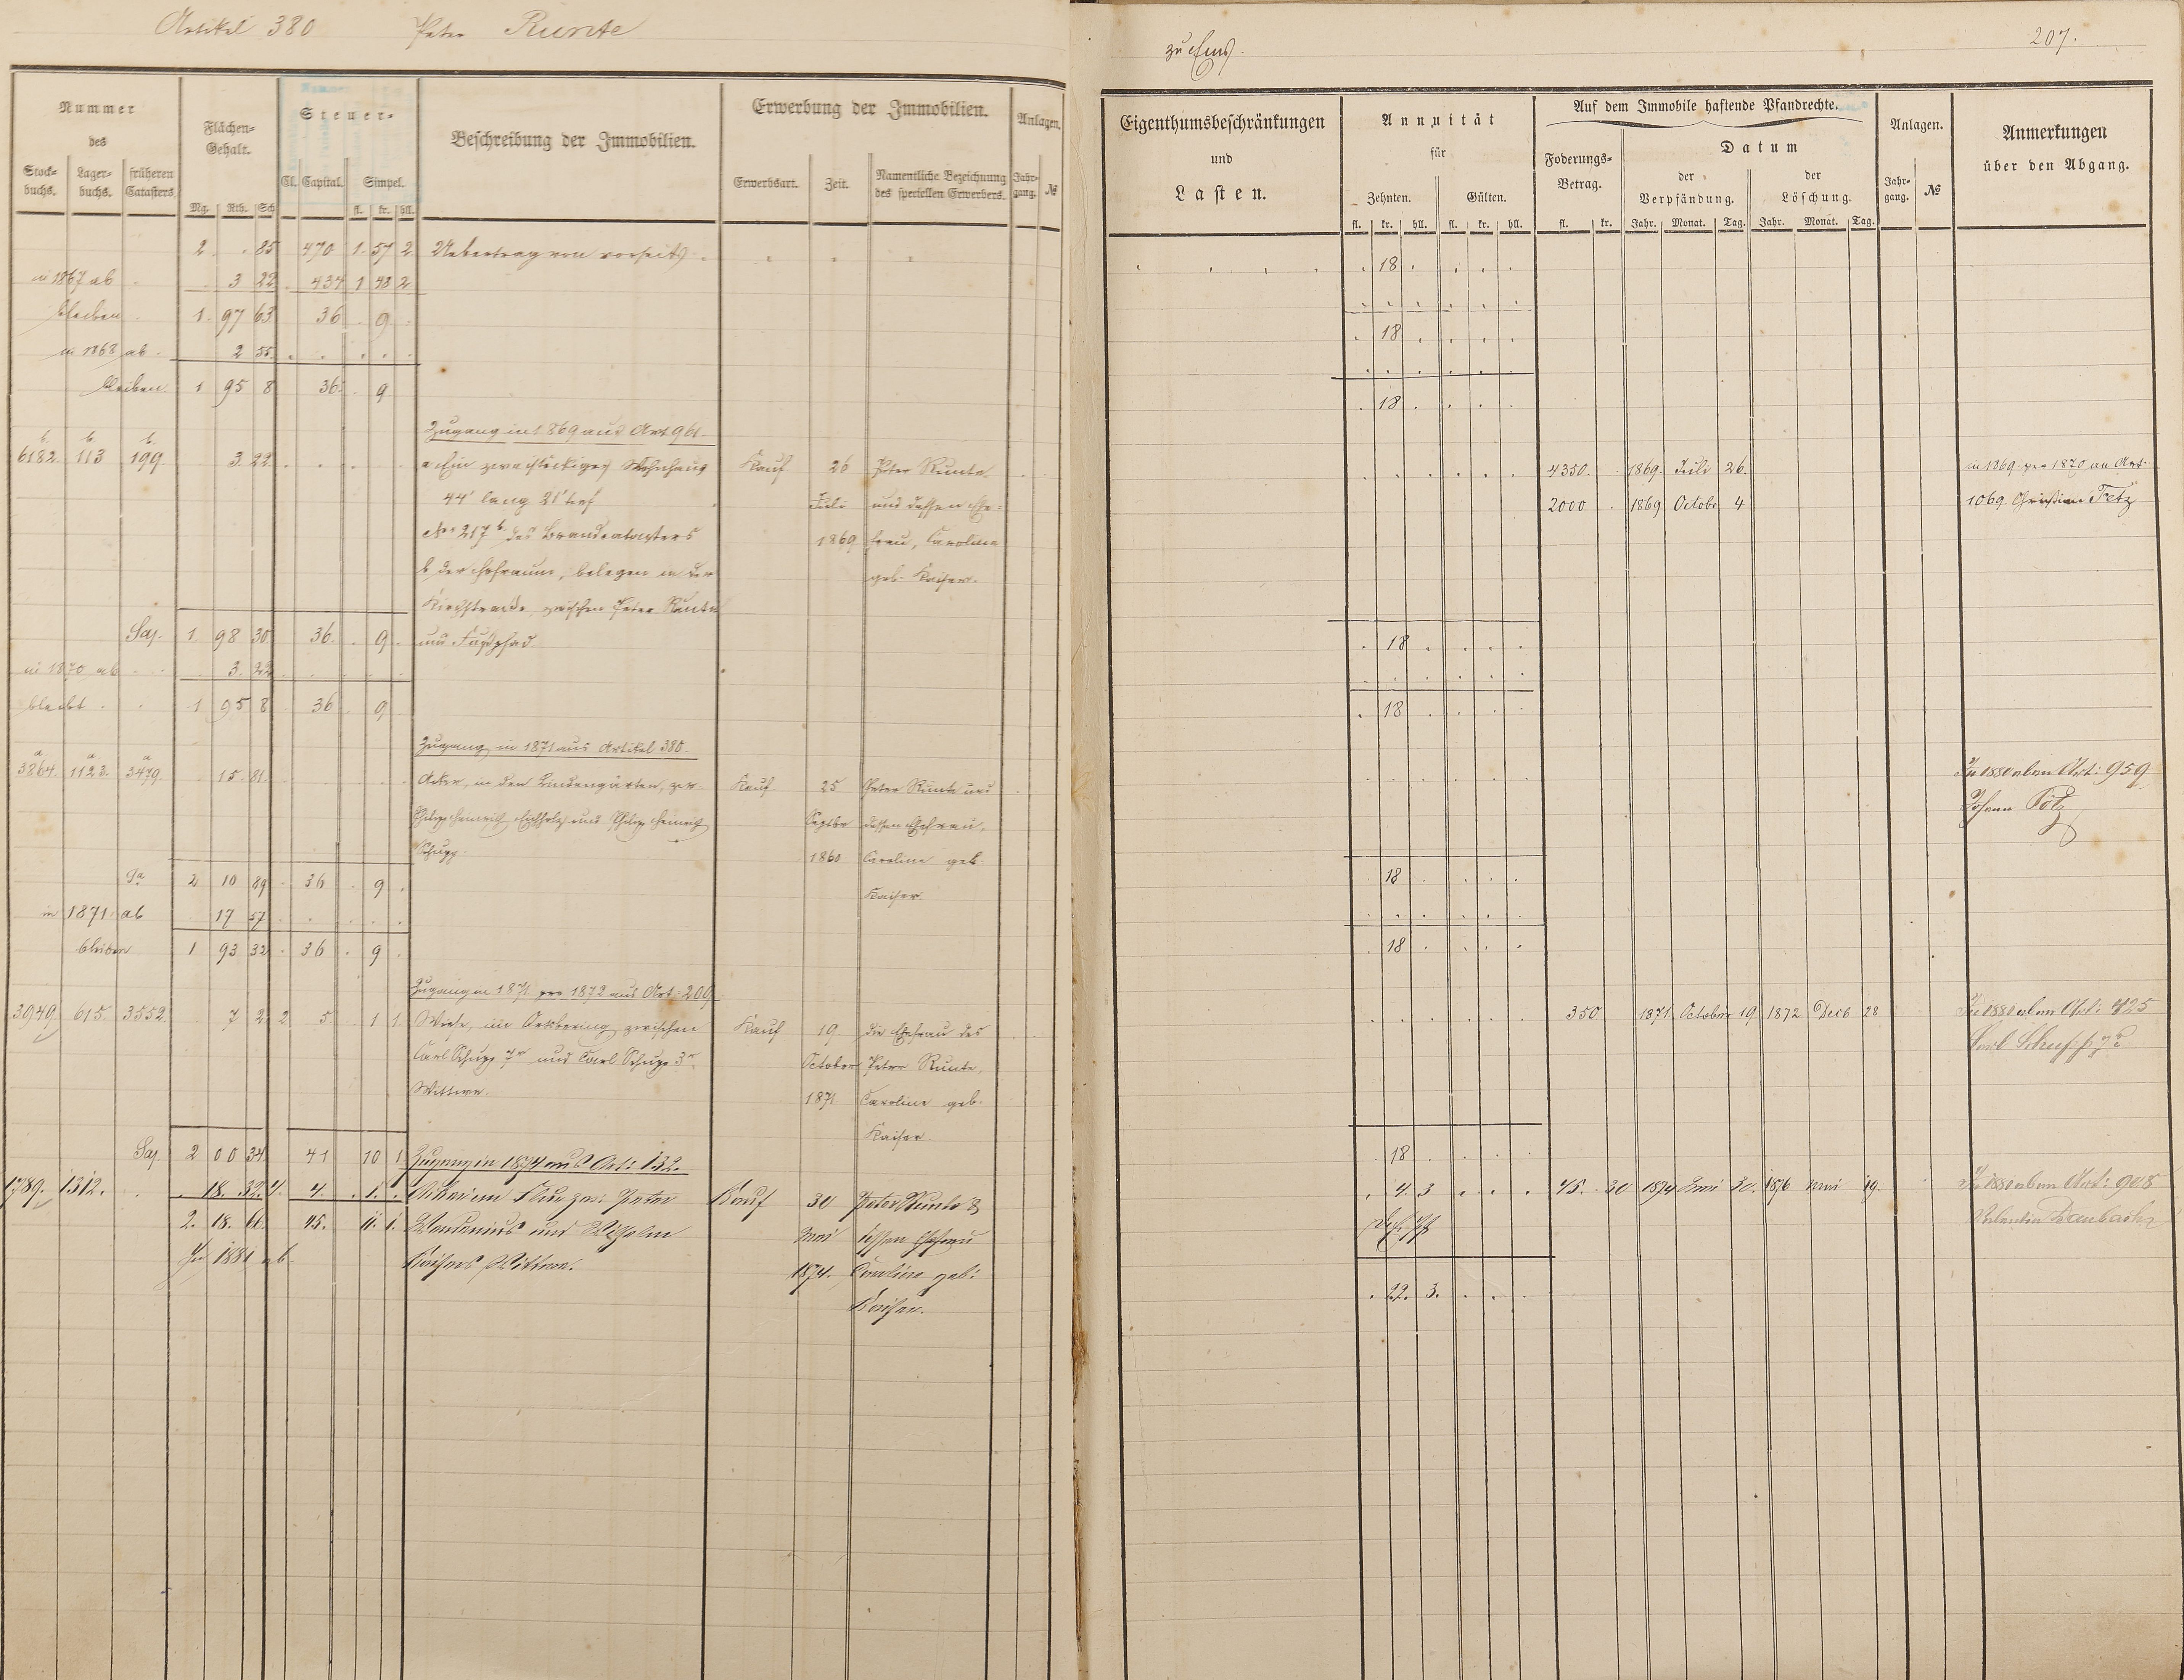 Artikel 380 Peter Runte
Nummer des
Stockbuchs. Lagerbuchs. früheren Catasters.
Flächen-Gehalt.
Mg. Rth. Sch.
Steuer-
Cl. Capital. Simpel.
fl. kr. hll.
Beschreibung der Immobilien.
Erwerbung der Immobilien.
Erwerbsart. Zeit. Namentliche Bezeichnung des speciellen Erwerbers.
Anlagen.
Jahrgang. №
2 . 85 470 1. 57 2 Uebertrag von vorseits
in 1867 ab 3 22 434 1 48 2
bleiben 1. 97 63 36 9
in 1868 ab 2 55
bleiben 1 95 8 36 9
Zugang in 1869 aus Art 961.
6182 b. 113 b. 199 b. 3 22 a. Ein zweistöckiges Wohnhaus Kauf 26 Peter Runte
44' lang 21' tief Juli und dessen Ehe-
No 217 b. des Brandcatasters 1869 frau, Caroline
b. der Hofraum, belegen in der geb. Kaiser.
Kirchstraße, zwischen Peter Runte
Sa. 1 98 30 36 9 und Fußpfad
in 1870 ab 3. 22
bleibt 1 95 8 36 9
Zugang in 1871 aus Artikel 380.
3864 a 1123 a 3479 a 15. 81 Acker, in den Lindengärten, zw. Kauf 25 Peter Runte und
Philipp Heinrich und Philipp Heinrich Septbr dessen Ehefrau,
Schupp. 1860 Caroline geb.
Kaiser.
Sa 2 10 89 36 9
in 1871 ab 17 57
bleiben 1 93 32 36 9
Zugang in 1871 pro 1872 aus Art: 209
3949 615 3552 7 2 2 5 1 1 Wiese, im zwischen Kauf 19 die Ehefrau des
Carl Schupp 7r und Carl Schupp 3r October Peter Runte,
Wittwe. 1871 Caroline geb.
Kaiser
Sa. 2 00 34 41 10 1 Zugang in 1874 aus Art: 132.
1789. 1312. 18. 32. 4. 4. 1. Acker im zw: Peter Kauf 30 Peter Runte &
2. 18. 66. 45. 11. 1. und Wilhelm Mai dessen Ehefrau
In 1881 ab Kaisers Wittwe. 1874. Caroline geb:
Kaiser.
zu Ems. 207.
Eigenthumsbeschränkungen und Lasten.
Annuität für
Zehnten. Gülten.
fl. kr. hll. fl. kr. hll.
Auf dem Immobile haftende Pfandrechte.
Foderungs-Betrag.
fl. kr.
Datum
der Verpfändung. der Löschung.
Jahr. Monat. Tag. Jahr. Monat. Tag.
Anlagen.
Jahrgang. №
Anmerkungen über den Abgang.
18
18
18
4350. 1869. Juli 26. in 1869 pro 1870 an Art.
2000 1869 Octobr 4 1069. Christian Fetz
18
18
In 1880 Art: 959
Johann
18
18
350 1871. October 19. 1872 Decb 28 In 1880 Art: 425
Carl Schupp 7r
18
4. 3 45. 30 1874 Mai 30. 1876 Mai 19. In 1880 Art: 908
Valentin
22. 3.